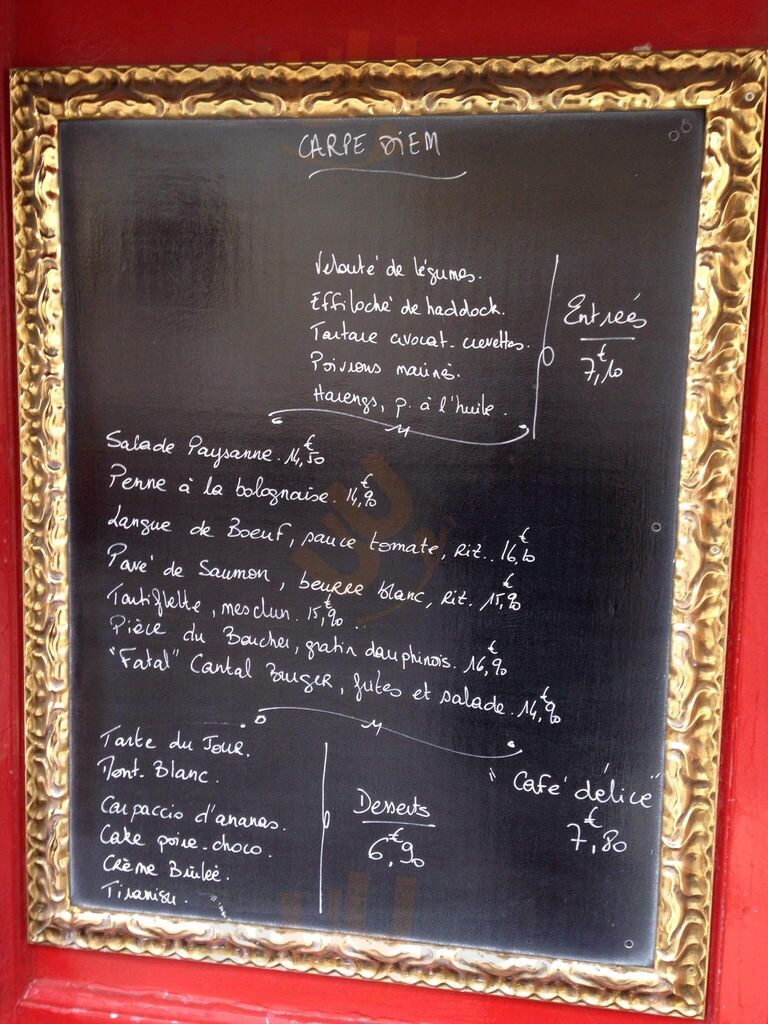 CARPE DIEM
Velouté de légumes.
Effiloché de haddock.
Tartare avocat-crevettes.
Poivrons marinés.
Harengs, p. à l'huile.
Entrées
7,10€
Salade Paysanne. 14,50€
Penne à la bolognaise. 14,90€
Langue de Boeuf, sauce tomate, Riz.. 16,10€
Pavé de Saumon, beurre blanc, Riz. 15,90€
Tartiflette, mesclun. 15,90€.
Pièce du Boucher, gratin dauphinois. 16,90€
"Fatal" Cantal Burger, frites et salade. 14,90€
Tarte du Jour.
Mont-Blanc.
Carpaccio d'ananas.
Cake poire-choco.
Crème Brûlée.
Tiramisu.
Desserts
6,90€
"Café délice"
7,80€